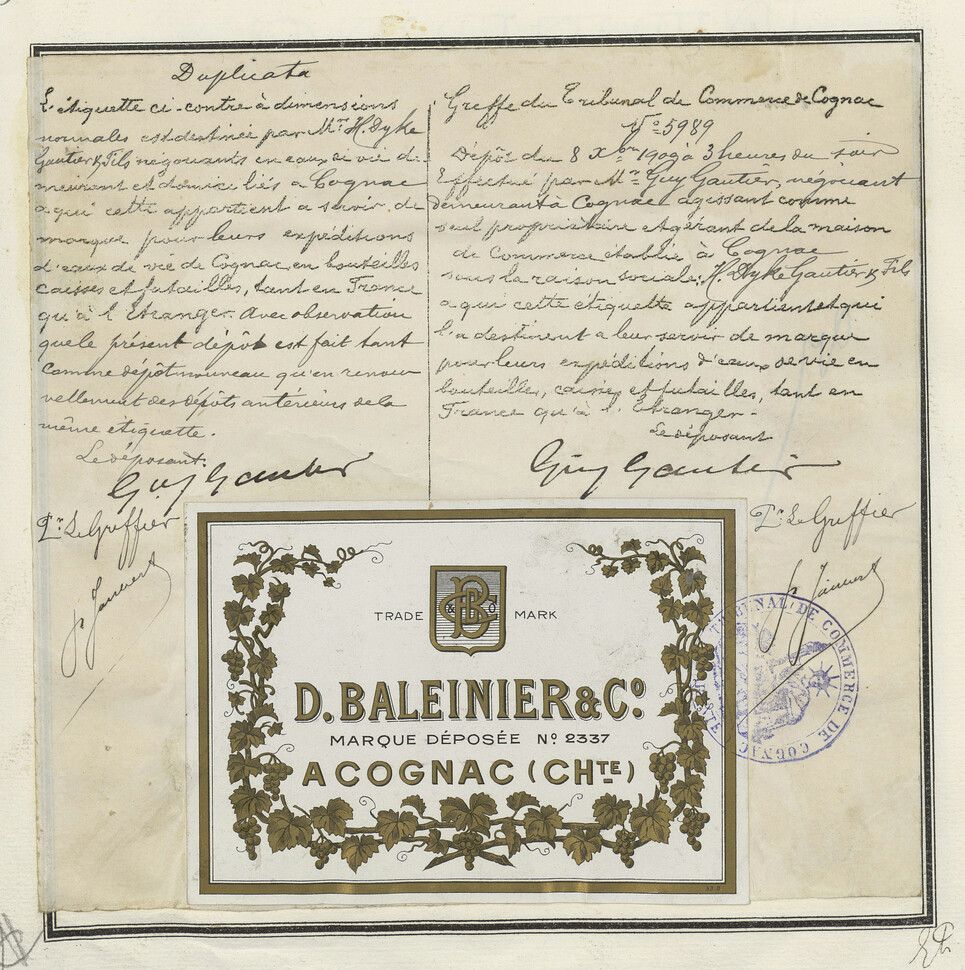 Duplicata
L'étiquette ci-contre à dimensions
normales est destinée par Mrs H. Dyke
Gautier & Fils négociants en eaux de vie de
meurant et domiciliés a Cognac
a qui cette appartient a servir de
marque pour leurs expéditions
d'eaux de vie de Cognac, en bouteilles
caisses et futailles, tant en France
qu'à l'Etranger. Avec observation
que le présent dépôt est fait tant
comme dépôt nouveau qu'en renou
vellement des dépôts antérieurs de la
même étiquette.
Le déposant.
Guy Gautier
Pr. Le Greffier
Greffe du Tribunal de Commerce de Cognac
No 5989
Dépôt du 8 Xbre 1909 à 3 heures du soir
Effectué par Mr Guy Gautier, négociant
demeurant à Cognac agissant comme
seul propriétaire et gérant de la maison
de Commerce établie à Cognac
sous la raison sociale: H. Dyke Gautier & Fils
a qui cette étiquette appartient et qui
l'a destinent a leur servir de marque
pour leurs expéditions d'eaux de vie en
bouteilles, caisses et futailles, tant en
France qu'à l'Etranger.
Le déposant
Guy Gautier
Pr. Le Greffier
TRIBUNAL DE COMMERCE DE COGNAC
TRADE MARK
D. BALEINIER & Co.
MARQUE DÉPOSÉE No 2337
A COGNAC (CHTE)